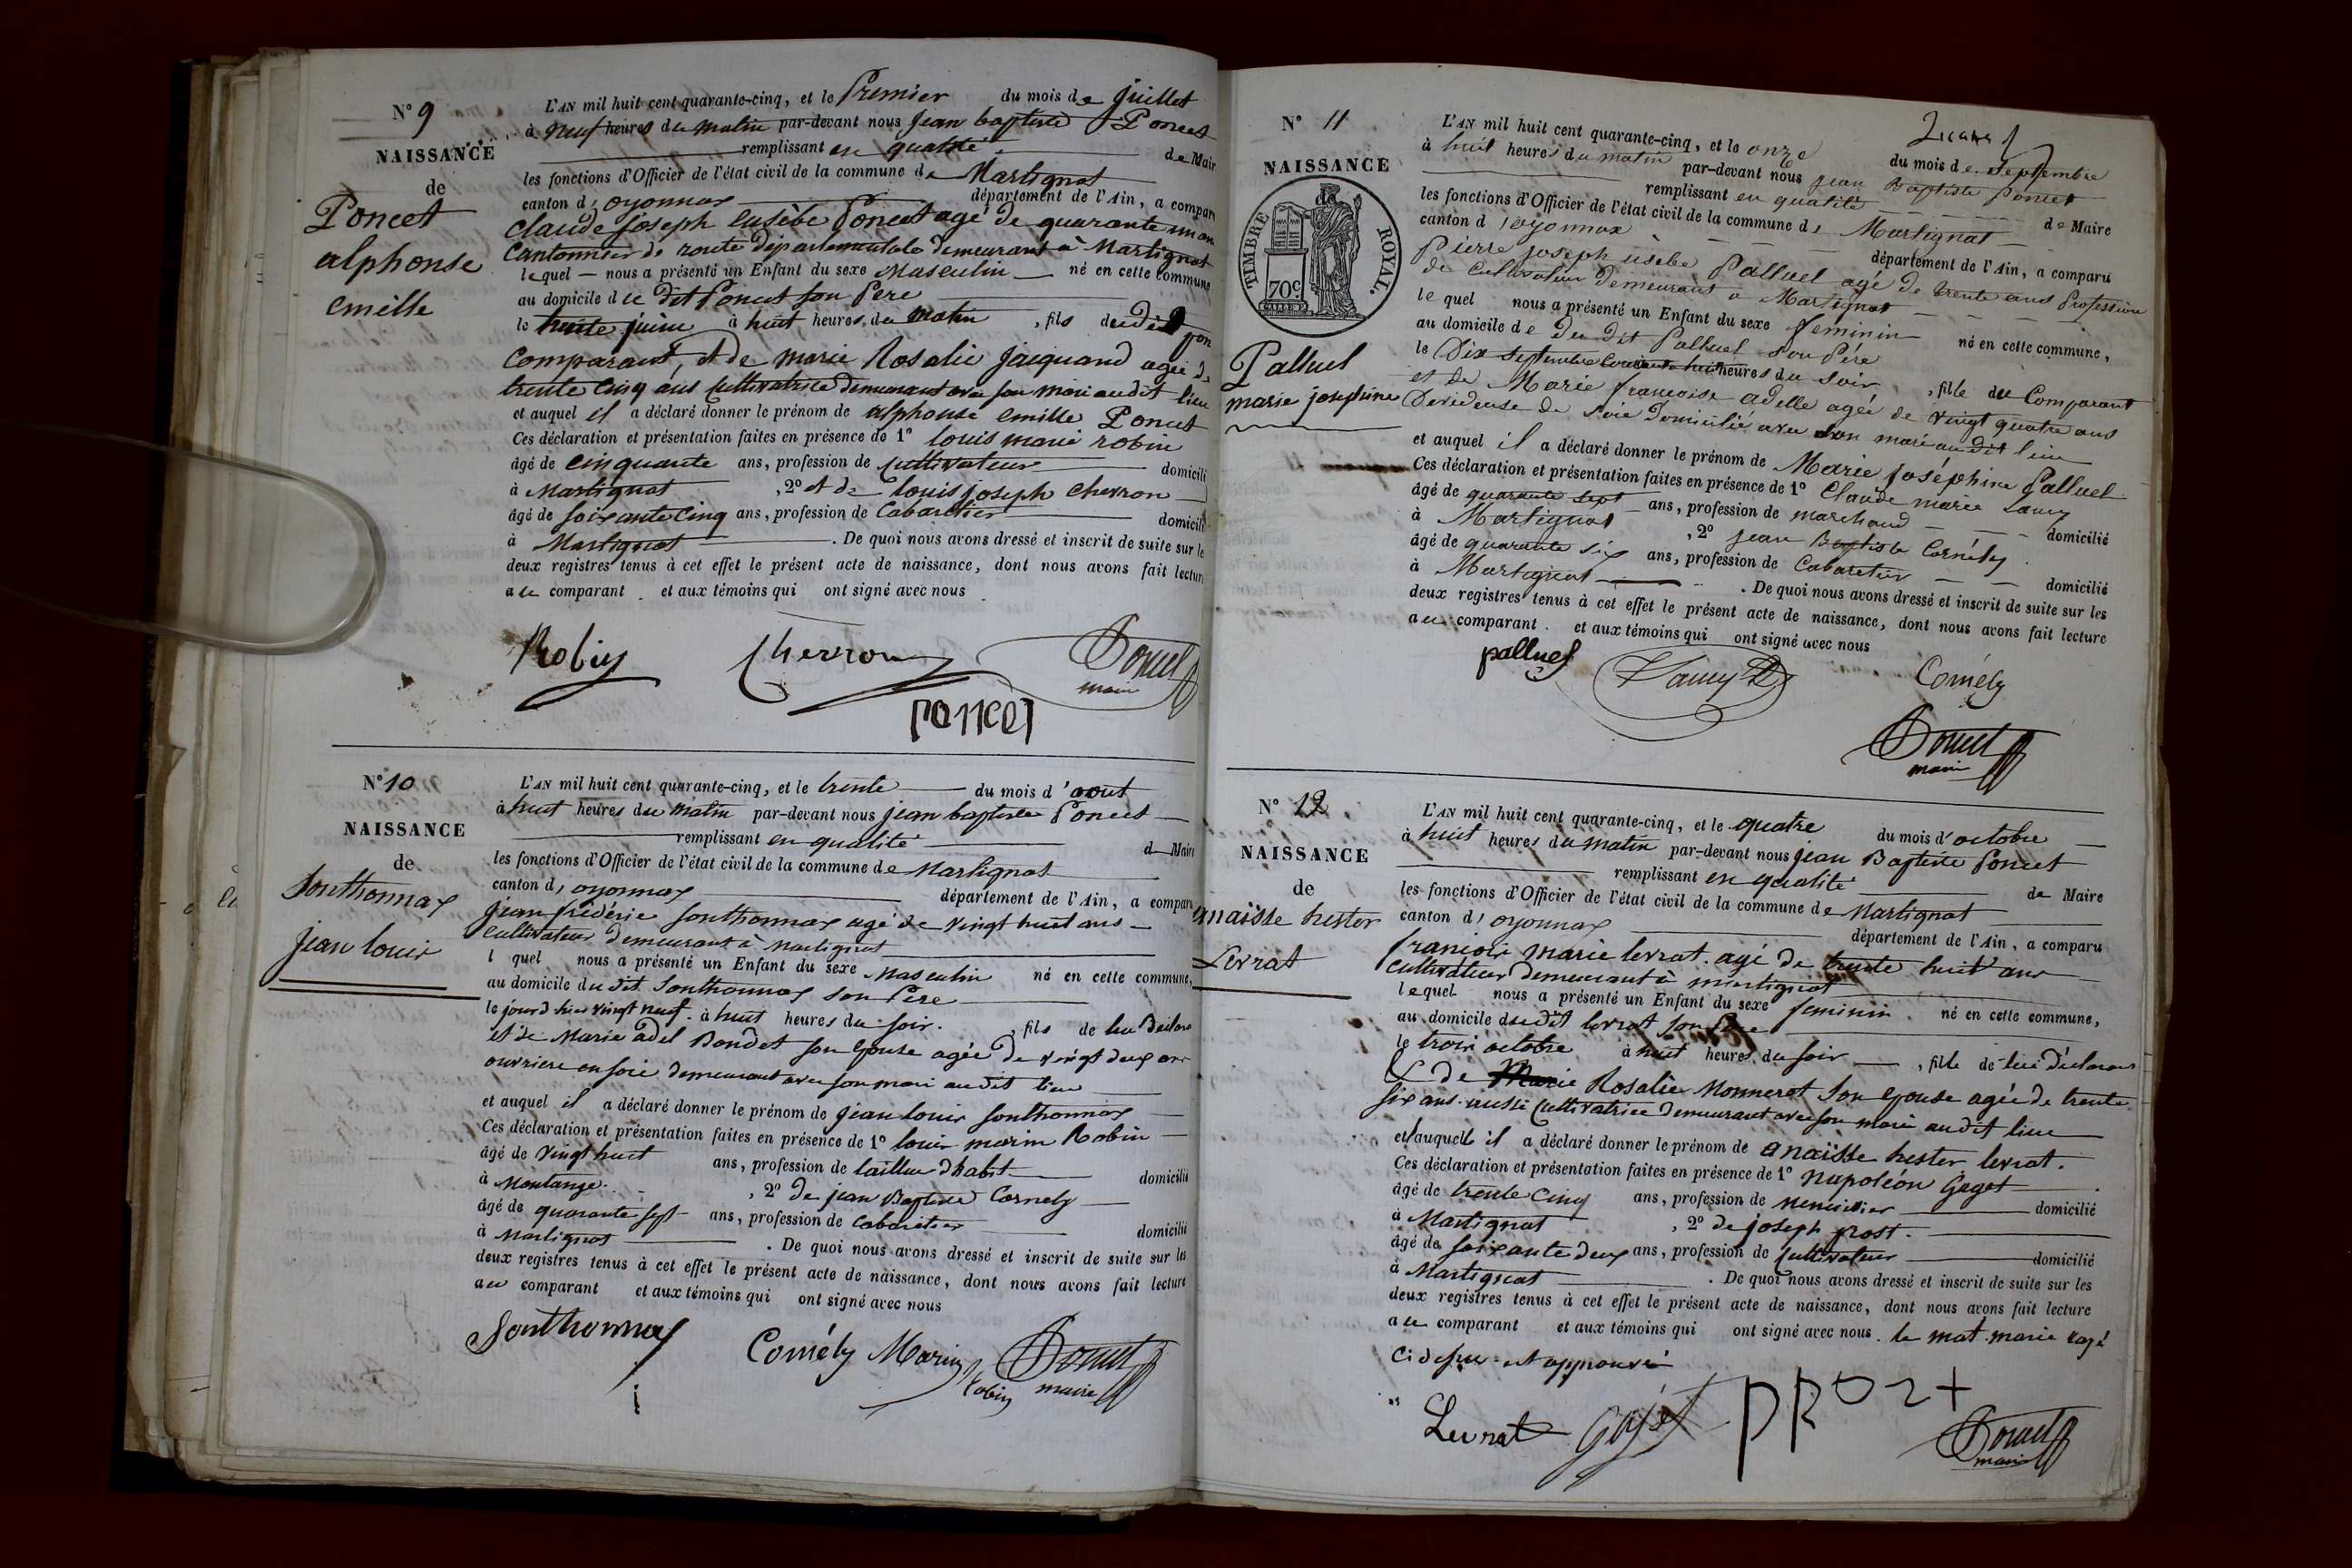 N° 9
NAISSANCE
de
Poncet
alphonse
emille
L'AN mil huit cent quarante-cinq, et le Premier du mois de Juillet
à neuf heures du matin par-devant nous jean baptiste Poncet
remplissant en qualité de Mair
les fonctions d'Officier de l'état civil de la commune de Martignat
canton d, oyonnax département de l'Ain, a compar
claude joseph eusèbe Poncet agé de quarante un an
Cantonnier de route départementale demeurant à Martignat
lequel nous a présenté un Enfant du sexe Masculin né en cette commune
au domicile du dit Poncet son Père
le trente juin à huit heures du matin, fils du dit
comparant, et de marie Rosalie jacquand agée de
trente cinq ans Cultivatrice demeurant avec son mari au dit lieu
et auquel il a déclaré donner le prénom de alphonse emille Poncet
Ces déclaration et présentation faites en présence de 1° louis marie robin
âgé de cinquante ans, profession de Cultivateur domicili
à Martignat, 2° et de louis joseph cherron
âgé de soixante cinq ans, profession de Cabaretier domicili
à Martignat. De quoi nous avons dressé et inscrit de suite sur le
deux registres tenus à cet effet le présent acte de naissance, dont nous avons fait lectur
au comparant et aux témoins qui ont signé avec nous
Robin Cherron Poncet
maire
poncet
N° 10
NAISSANCE
de
Sonthonnax
jean louis
L'AN mil huit cent quarante-cinq, et le trente du mois d'aout
à huit heures du matin par-devant nous jean baptiste Poncet
remplissant en qualité d Maire
les fonctions d'Officier de l'état civil de la commune de Martignat
canton d, oyonnax département de l'Ain, a compar
jean frédéric sonthonnax agé de vingt huit ans
cultivateur demeurant à martignat
l quel nous a présenté un Enfant du sexe Masculin né en cette commune,
au domicile du dit Sonthonnax son Père
le jour d hier vingt neuf à huit heures du soir, fils de lui Déclara
et de Marie adel Bondet son epouse agée de vingt deux ans
ouvriere en soie demeurant avec son mari au dit lieu
et auquel il a déclaré donner le prénom de jean louis sonthonnax
Ces déclaration et présentation faites en présence de 1° louis marin Robin
âgé de vingt huit ans, profession de tailleur d'habit domicilié
à Montange, 2° de jean Baptiste Cornely
âgé de quarante sept ans, profession de cabaretier domicilié
à Martignat. De quoi nous avons dressé et inscrit de suite sur les
deux registres tenus à cet effet le présent acte de naissance, dont nous avons fait lecture
au comparant et aux témoins qui ont signé avec nous
Sonthonnax Cornély Marin Poncet
robin maire
N° 11
NAISSANCE
de
TIMBRE ROYAL.
70c.
Palluel
marie josephine
L'AN mil huit cent quarante-cinq, et le onze du mois de septembre
à huit heures du matin par-devant nous jean Baptiste Poncet
remplissant en qualité de Maire
les fonctions d'Officier de l'état civil de la commune de Martignat
canton d, oyonnax département de l'Ain, a comparu
Pierre joseph usèbe Palluel agé de trente ans Profession
de Cultivateur demeurant a Martignat
le quel nous a présenté un Enfant du sexe feminin né en cette commune,
au domicile de du dit Palluel son Père
le Dix septembre Courant à huit heures du soir, fille du Comparant
et de Marie françoise adelle agée de vingt quatre ans
Devideuse de soie domicilié avec son mari au dit lieu
et auquel il a déclaré donner le prénom de Marie joséphine Palluel
Ces déclaration et présentation faites en présence de 1° Claude marie
âgé de quarante sept ans, profession de marchand domicilié
à Martignat, 2° jean Baptiste Cornély
âgé de quarante six ans, profession de Cabaretier domicilié
à Martignat. De quoi nous avons dressé et inscrit de suite sur les
deux registres tenus à cet effet le présent acte de naissance, dont nous avons fait lecture
au comparant et aux témoins qui ont signé avec nous
palluel Cornély
Poncet
maire
N° 12
NAISSANCE
de
anaïsse hester
Levrat
L'AN mil huit cent quarante-cinq, et le quatre du mois d'octobre
à huit heures du matin par-devant nous jean Baptiste Poncet
remplissant en qualité de Maire
les fonctions d'Officier de l'état civil de la commune de Martignat
canton d, oyonnax département de l'Ain, a comparu
françois marie levrat agé de trente huit ans
cultivateur demeurant à martignat
lequel nous a présenté un Enfant du sexe feminin né en cette commune,
au domicile du dit levrat son Père
le trois octobre à huit heures du soir, fille de lui déclarant
& de Marie Rosalie Monneret son epouse agée de trente
six ans aussi Cultivatrice demeurant avec son mari au dit lieu
et auquelle il a déclaré donner le prénom de anaïsse hester levrat.
Ces déclaration et présentation faites en présence de 1° Napoléon Gaget
âgé de trente cinq ans, profession de menuisier domicilié
à Martignat, 2° de joseph prost.
âgé de soixante deux ans, profession de Cultivateur domicilié
à Martignat. De quoi nous avons dressé et inscrit de suite sur les
deux registres tenus à cet effet le présent acte de naissance, dont nous avons fait lecture
au comparant et aux témoins qui ont signé avec nous. le mot marie rayé
ci dessus et approuvé
Levrat Gaget prost
Poncet
maire